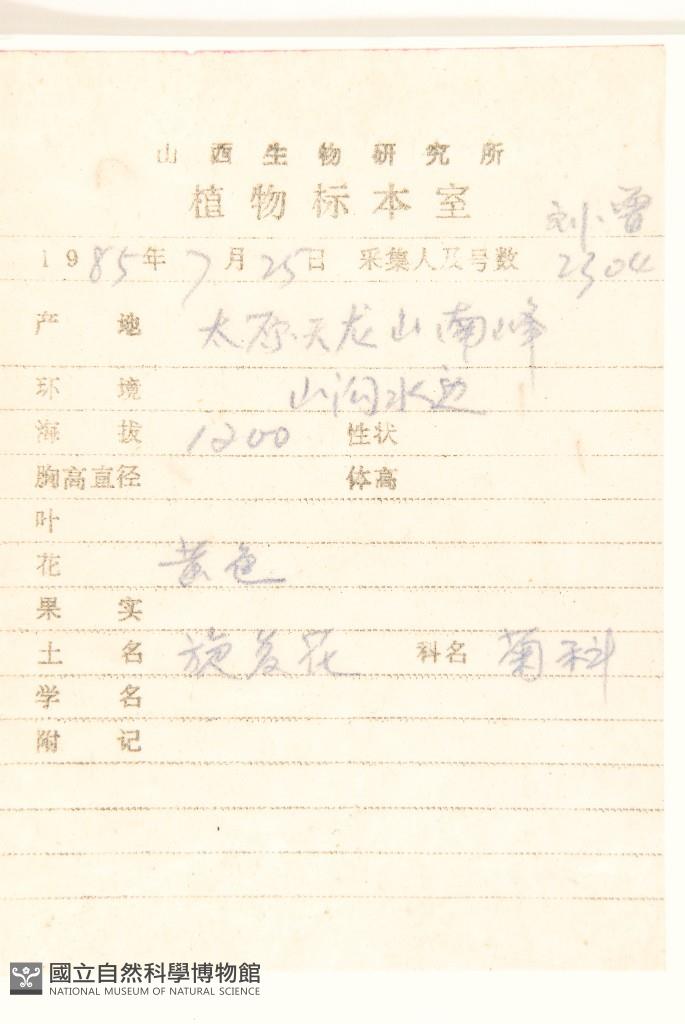 山西生物研究所
植物标本室
刘、曾
1985年7月25日 采集人及号数 2304
产地 太原天龙山南峰
环境 山沟水边
海拔 1200 性状
胸高直径 体高
叶
花 黄色
果实
土名 旋复花 科名 菊科
学名
附记
國立自然科學博物館
NATIONAL MUSEUM OF NATURAL SCIENCE